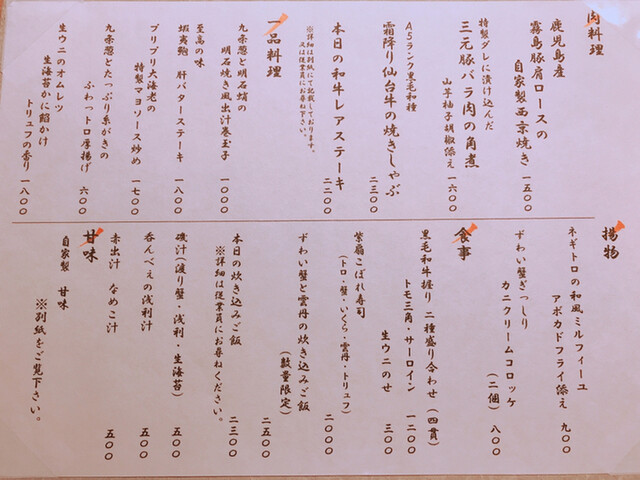 肉料理
鹿児島産
霧島豚肩ロースの
自家製西京焼き 一五〇〇
特製ダレに漬け込んだ
三元豚バラ肉の角煮
山芋柚子胡椒添え 一六〇〇
A5ランク黒毛和種
霜降り仙台牛の焼きしゃぶ
二三〇〇
本日の和牛レアステーキ
二二〇〇
※詳細は別紙にて記載しております。
又は従業員にお尋ね下さい。
一品料理
九条葱と明石蛸の
明石焼き風出汁巻玉子
一〇〇〇
至高の味
蝦夷鮑 肝バターステーキ
一八〇〇
プリプリ大海老の
特製マヨソース炒め
一七〇〇
九条葱とたっぷり糸がきの
ふわっトロ厚揚げ 六〇〇
生ウニのオムレツ
生海苔かに餡かけ
トリュフの香り 一八〇〇
揚物
ネギトロの和風ミルフィーユ
アボカドフライ添え 九〇〇
ずわい蟹ぎっしり
カニクリームコロッケ
(二個) 八〇〇
食事
黒毛和牛握り 二種盛り合わせ(四貫)
トモ三角・サーロイン 一二〇〇
生ウニのせ 三〇〇
紫扇こぼれ寿司
(トロ・蟹・いくら・雲丹・トリュフ)
二〇〇〇
ずわい蟹と雲丹の炊き込みご飯
(数量限定) 二五〇〇
本日の炊き込みご飯 二三〇〇
※詳細は従業員にお尋ねください。
磯汁(渡り蟹・浅利・・生海苔) 五〇〇
呑んべえの浅利汁 五〇〇
赤出汁 なめこ汁 五〇〇
甘味
自家製 甘味
※別紙をご覧下さい。